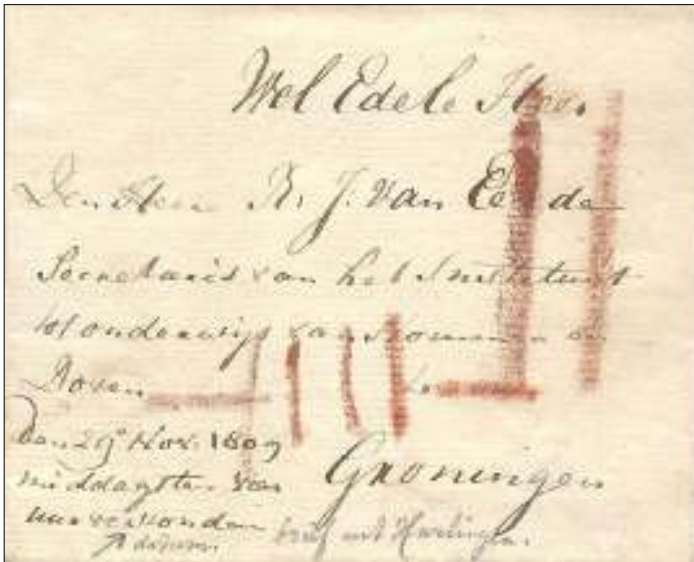 Wel Edele Heer
Den Heer R: J. van Eerde
Secretaris van het Instituut
tot onderwijs van Stommen en
Doven te
Groningen
Den 29e Nov. 1809
middags ten vier
uur verzonden
datum
brief uit Harlingen.